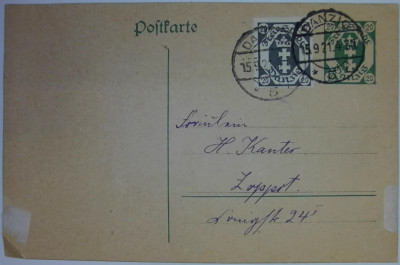 Postkarte
DANZIG
15.9.21
DANZIG
15.9.21
5
Fräulein
H. Kanter
Zoppot.
Königstr. 24